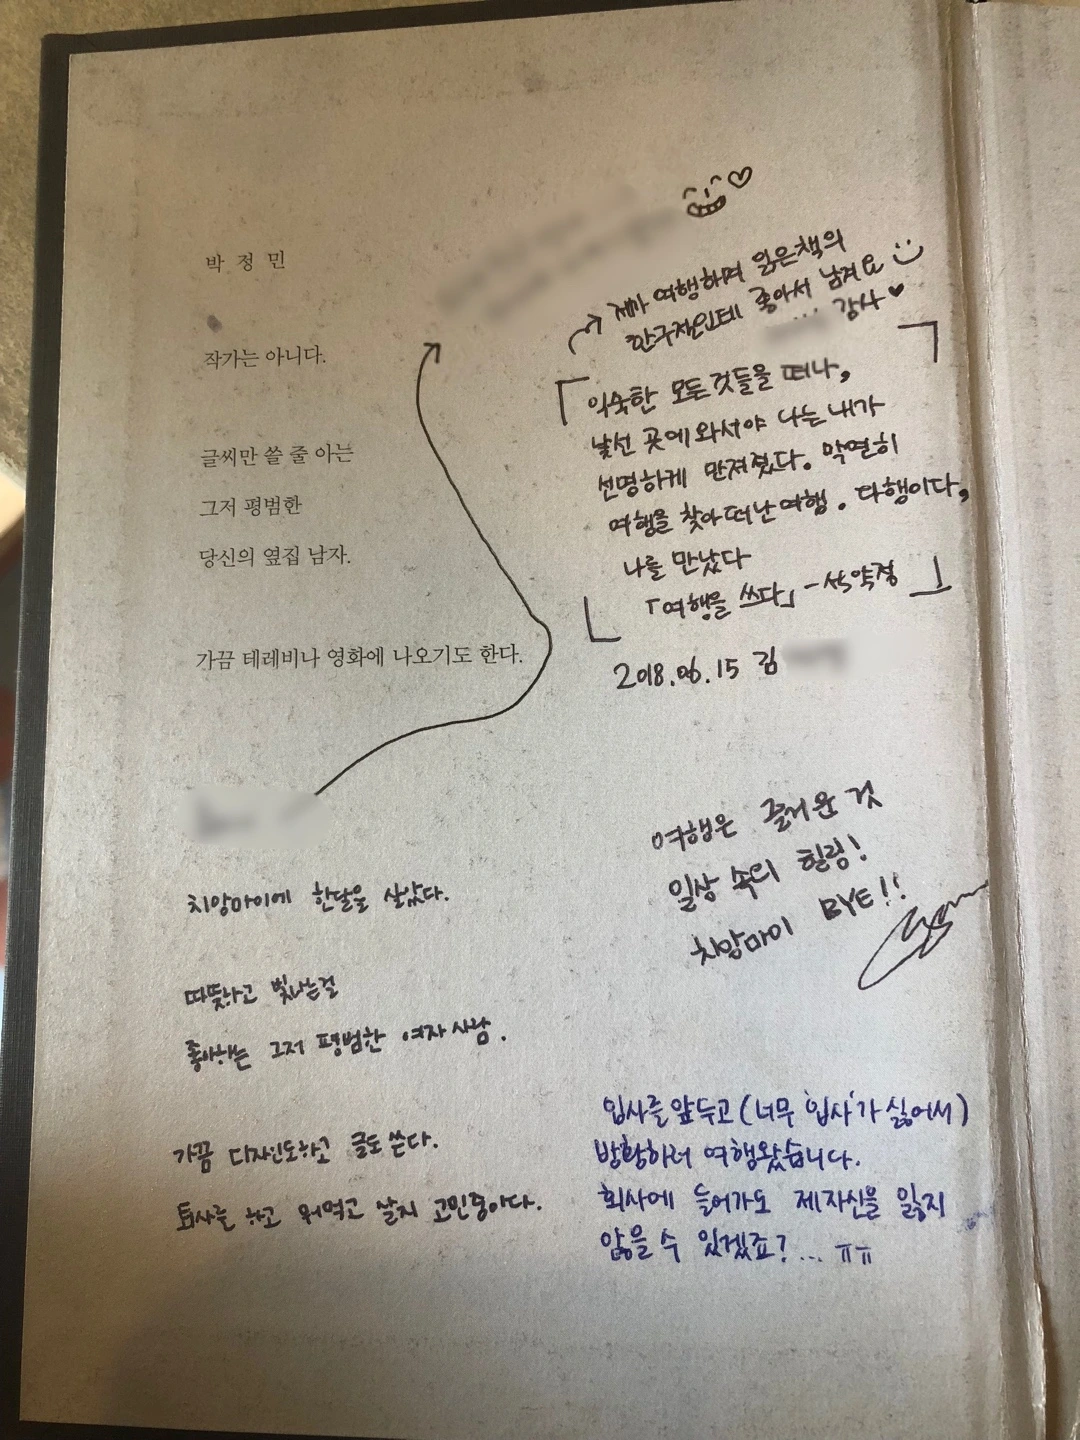 박 정 민
작가는 아니다.
글씨만 쓸 줄 아는
그저 평범한
당신의 옆집 남자.
가끔 테레비나 영화에 나오기도 한다.
치앙마이에 한달을 살았다.
따뜻하고 빛나는걸
좋아하는 그저 평범한 여자사람.
가끔 디자인도하고 글도 쓴다.
퇴사를 하고 뭐먹고 살지 고민중이다.
제가 여행하며 읽은책의
한구절인데 좋아서 남겨요
감사
익숙한 모든것들을 떠나,
낯선 곳에 와서야 나는 내가
선명하게 만져졌다. 막연히
여행을 찾아 떠난 여행. 다행이다,
나를 만났다
「여행을 쓰다」 -석약점
2018.06.15 김
여행은 즐거운 것
일상 속의 힐링!
치앙마이 BYE!!
입사를 앞두고 (너무 '입사'가 싫어서)
방황하러 여행왔습니다.
회사에 들어가도 제 자신을 잃지
않을 수 있겠죠?... ㅠㅠ